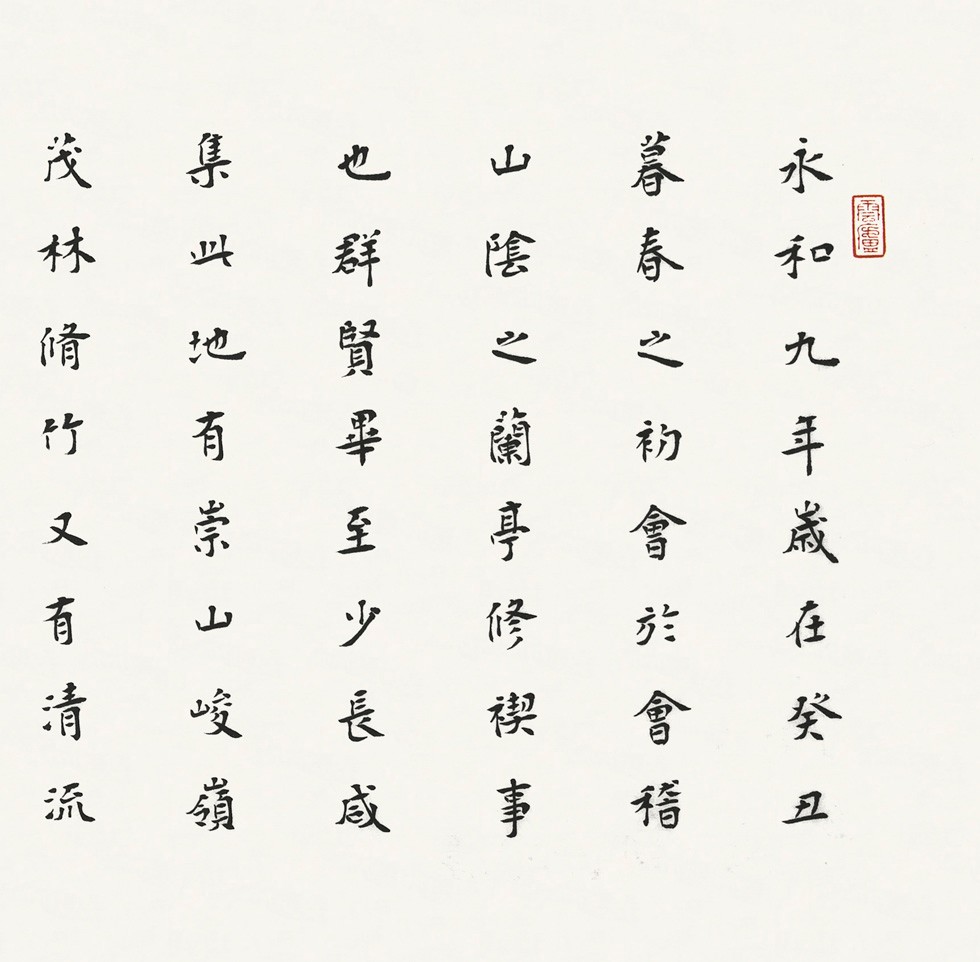 永和九年歲在癸丑
暮春之初會於會稽
山陰之蘭亭修禊事
也群賢畢至少長咸
集此地有崇山峻嶺
茂林脩竹又有清流